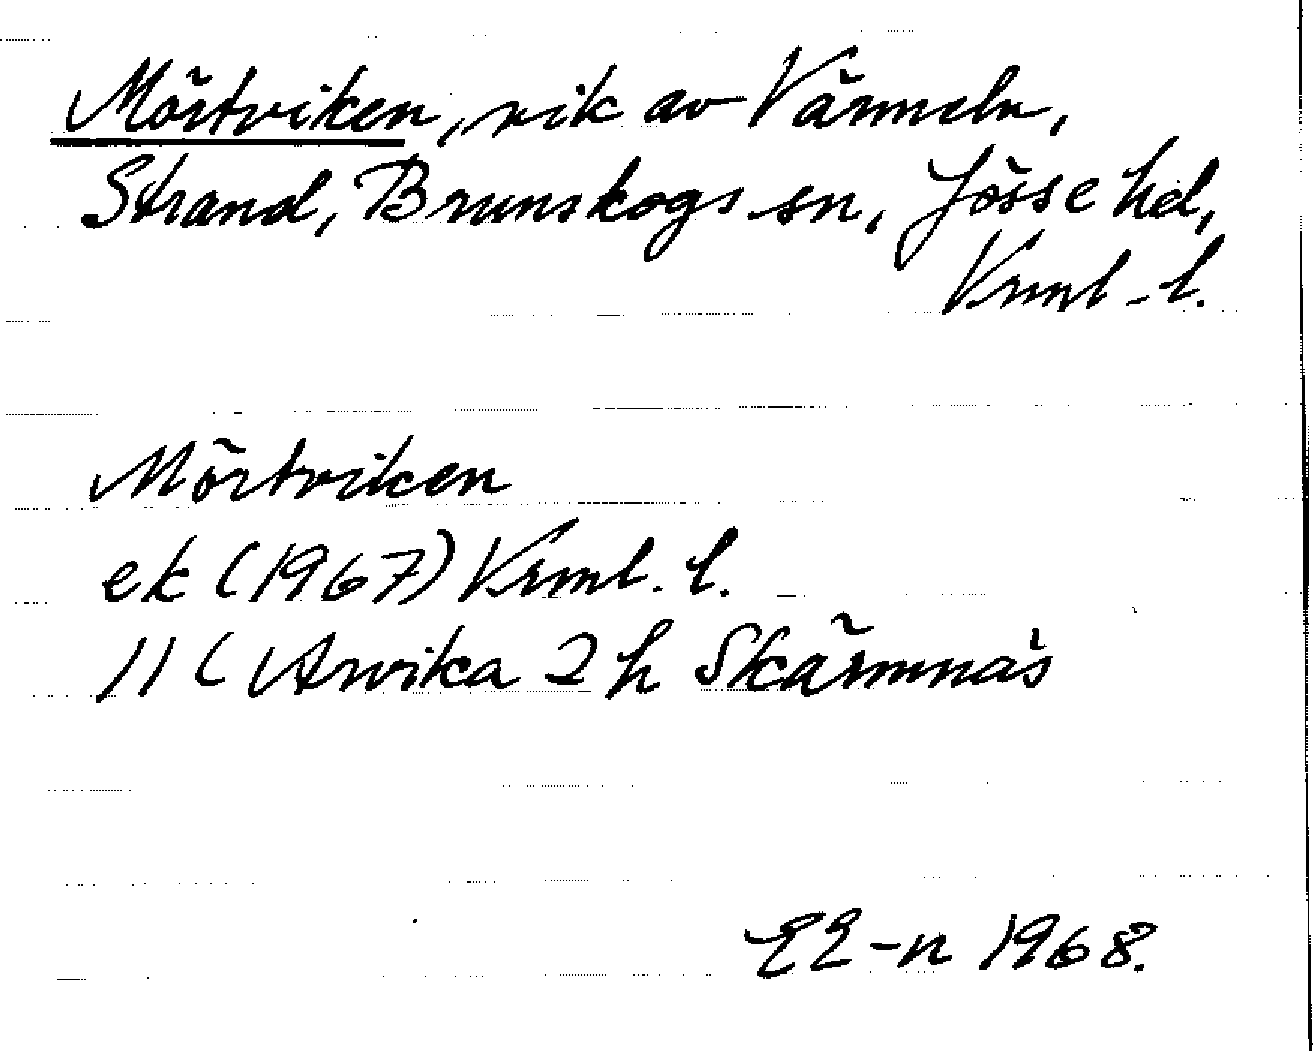 Mörtviken, vik av Värmeln,
Strand, Brunskogs sn, Jösse hd,
Vrml. l.
Mörtviken
ek (1967) Vrml. l.
11 C Arvika 2 h Skärmnäs
EE-n 1968.